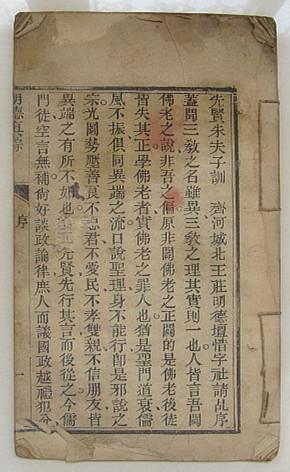 先賢朱夫子訓　齊河城北王莊明德壇惜字社請乩序
蓋聞三敎之名雖異三敎之理其實則一也人皆言吾闢
佛老之說非吾之偏原非闢佛老之正闢的是佛老後徒
皆失其正學佛老者實佛老之罪人也猶是聖門道衰儒
風不振俱同異端之流口說聖理身不能行卽是邪說之
宗光圖勢壓善良不忠君不愛民不孝雙親不信朋友皆
異端之有所不如也先賢先行其言而後從之今儒
門徒空言無補尙好談政論律庶人而議國政越禮犯分
序　一